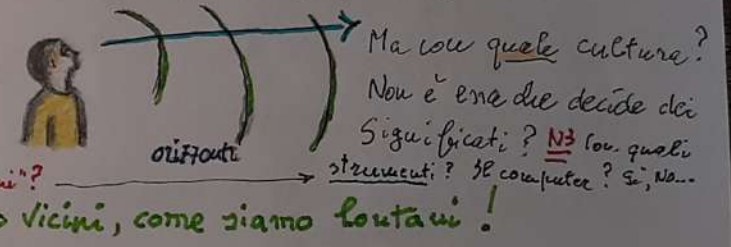 Ma con quale cultura?
Non è essa che decide dei
Significati? N3 Con quali
orizzonti
strumenti? Il computer? Si, No...
vicini, come siamo lontani!